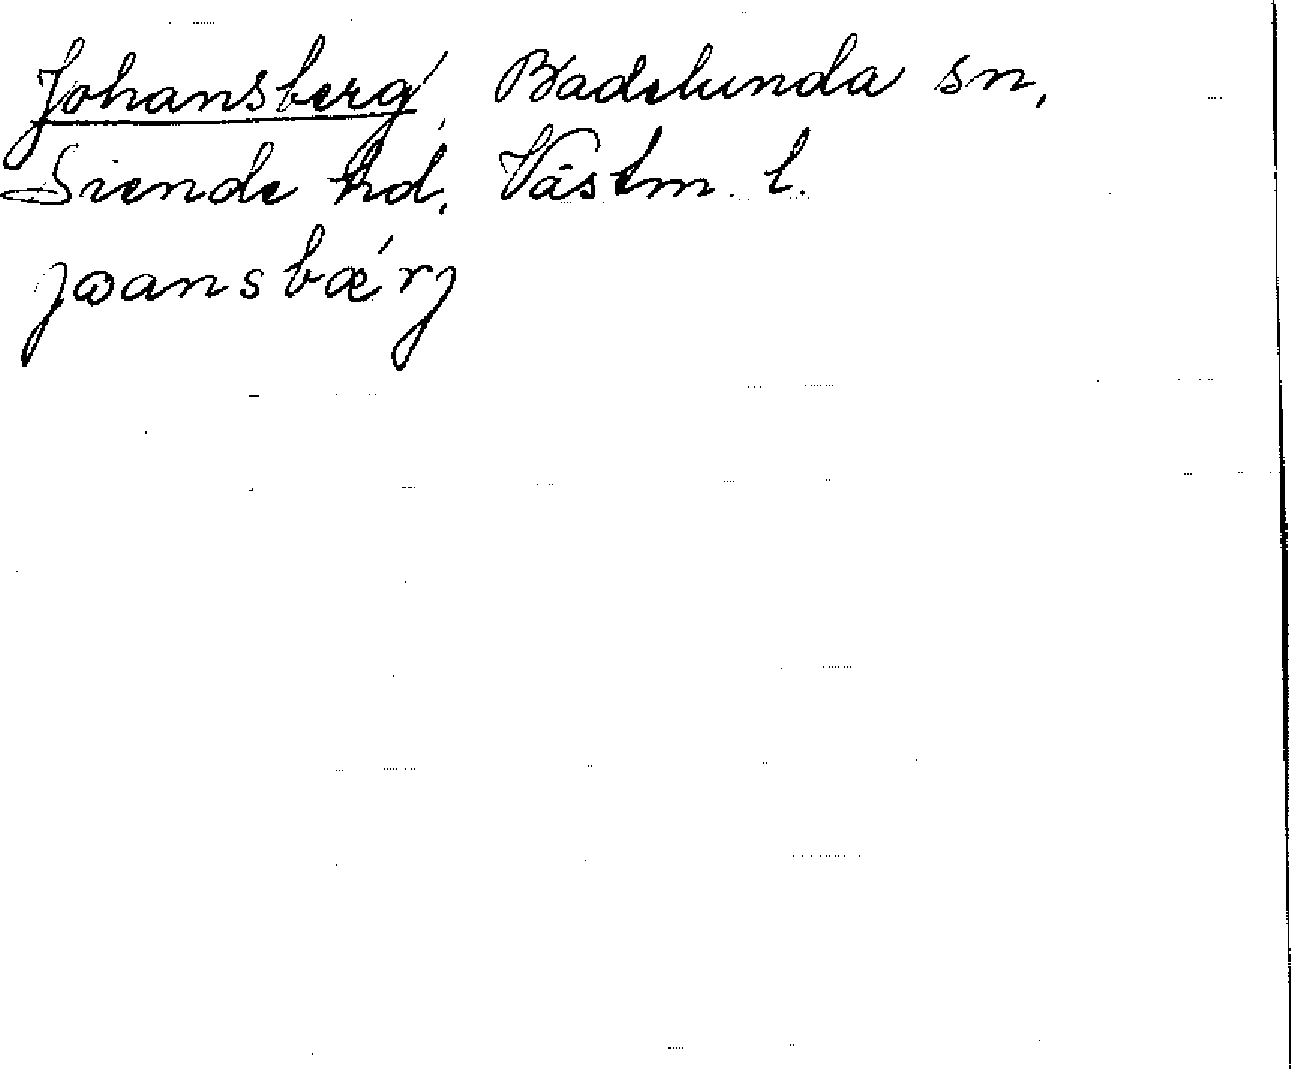 Johansberg, Badelunda sn,
Siende hd. Västm. l.
jωansbæ´rj